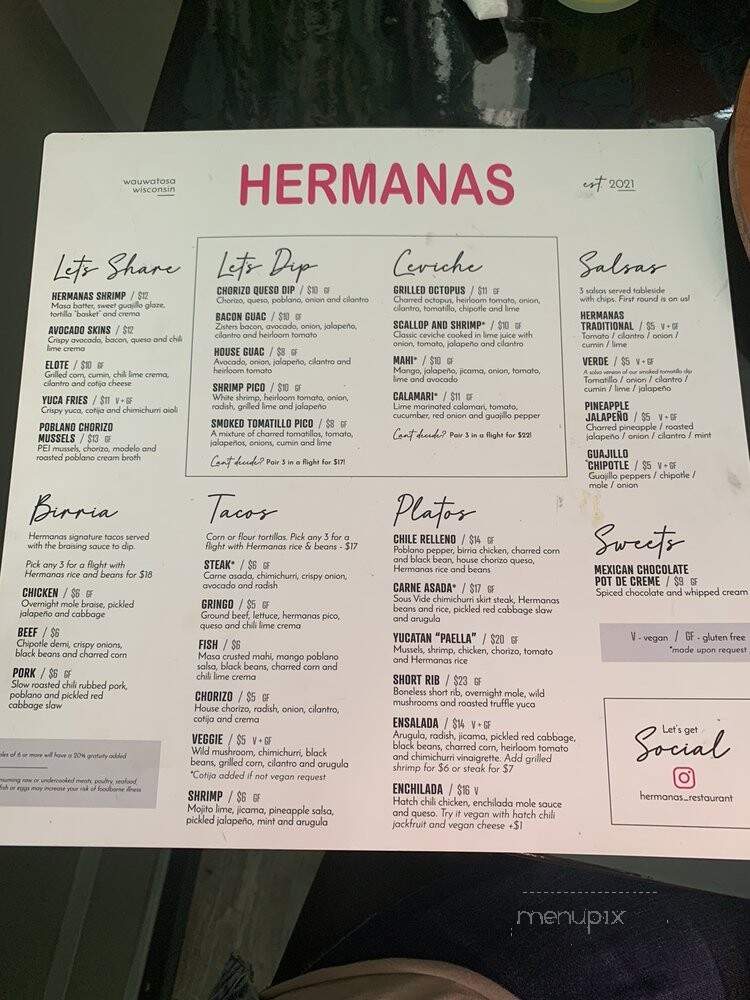 wauwatosa
wisconsin
HERMANAS
est 2021
Let's Share
HERMANAS SHRIMP / $12
Masa batter, sweet guajillo glaze,
tortilla "basket" and crema
AVOCADO SKINS / $12
Crispy avocado, bacon, queso and chili
lime crema
ELOTE / $10 GF
Grilled corn, cumin, chili lime crema,
cilantro and cotija cheese
YUCA FRIES / $11 V+GF
Crispy yuca, cotija and chimichurri aioli
POBLANO CHORIZO
MUSSELS / $13 GF
PEI mussels, chorizo, modelo and
roasted poblano cream broth
Let's Dip
CHORIZO QUESO DIP / $10 GF
Chorizo, queso, poblano, onion and cilantro
BACON GUAC / $10 GF
Zisters bacon, avocado, onion, jalapeño,
cilantro and heirloom tomato
HOUSE GUAC / $8 GF
Avocado, onion, jalapeño, cilantro and
heirloom tomato
SHRIMP PICO / $10 GF
White shrimp, heirloom tomato, onion,
radish, grilled lime and jalapeño
SMOKED TOMATILLO PICO / $8 GF
A mixture of charred tomatillos, tomato,
jalapeños, onions, cumin and lime
Can't decide? Pair 3 in a flight for $17!
Ceviche
GRILLED OCTOPUS / $11 GF
Charred octopus, heirloom tomato, onion,
cilantro, tomatillo, chipotle and lime
SCALLOP AND SHRIMP* / $10 GF
Classic ceviche cooked in lime juice with
onion, tomato, jalapeño and cilantro
MAHI* / $10 GF
Mango, jalapeño, jicama, onion, tomato,
lime and avocado
CALAMARI* / $11 GF
Lime marinated calamari, tomato,
cucumber, red onion and guajillo pepper
Can't decide? Pair 3 in a flight for $22!
Salsas
3 salsas served tableside
with chips. First round is on us!
HERMANAS
TRADITIONAL / $5 V+GF
Tomato / cilantro / onion /
cumin / lime
VERDE / $5 V+GF
A salsa version of our smoked tomatillo dip
Tomatillo / onion / cilantro /
cumin / lime / jalapeño
PINEAPPLE
JALAPEÑO / $5 V+GF
Charred pineapple / roasted
jalapeño / onion / cilantro / mint
GUAJILLO
CHIPOTLE / $5 V+GF
Guajillo peppers / chipotle /
mole / onion
Birria
Hermanas signature tacos served
with the braising sauce to dip.
Pick any 3 for a flight with
Hermanas rice and beans for $18
CHICKEN / $6 GF
Overnight mole braise, pickled
jalapeño and cabbage
BEEF / $6
Chipotle demi, crispy onions,
black beans and charred corn
PORK / $6 GF
Slow roasted chili rubbed pork,
poblano and pickled red
cabbage slaw
Tacos
Corn or flour tortillas. Pick any 3 for a
flight with Hermanas rice & beans - $17
STEAK* / $6 GF
Carne asada, chimichurri, crispy onion,
avocado and radish
GRINGO / $5 GF
Ground beef, lettuce, hermanas pico,
queso and chili lime crema
FISH / $6
Masa crusted mahi, mango poblano
salsa, black beans, charred corn and
chili lime crema
CHORIZO / $5 GF
House chorizo, radish, onion, cilantro,
cotija and crema
VEGGIE / $5 V+GF
Wild mushroom, chimichurri, black
beans, grilled corn, cilantro and arugula
*Cotija added if not vegan request
SHRIMP / $6 GF
Mojito lime, jicama, pineapple salsa,
pickled jalapeño, mint and arugula
Platos
CHILE RELLENO / $14 GF
Poblano pepper, birria chicken, charred corn
and black bean, house chorizo queso,
Hermanas rice and beans
CARNE ASADA* / $17 GF
Sous Vide chimichurri skirt steak, Hermanas
beans and rice, pickled red cabbage slaw
and arugula
YUCATAN "PAELLA" / $20 GF
Mussels, shrimp, chicken, chorizo, tomato
and Hermanas rice
SHORT RIB / $23 GF
Boneless short rib, overnight mole, wild
mushrooms and roasted truffle yuca
ENSALADA / $14 V+GF
Arugula, radish, jicama, pickled red cabbage,
black beans, charred corn, heirloom tomato
and chimichurri vinaigrette. Add grilled
shrimp for $6 or steak for $7
ENCHILADA / $16 V
Hatch chili chicken, enchilada mole sauce
and queso. Try it vegan with hatch chili
jackfruit and vegan cheese +$1
Sweets
MEXICAN CHOCOLATE
POT DE CREME / $9 GF
Spiced chocolate and whipped cream
V - vegan / GF - gluten free
*made upon request
of 6 or more will have a 20% gratuity added
raw or undercooked meats, poultry, seafood
fish or eggs may increase your risk of foodborne illness
Let's get
Social
hermanas_restaurant
menupix